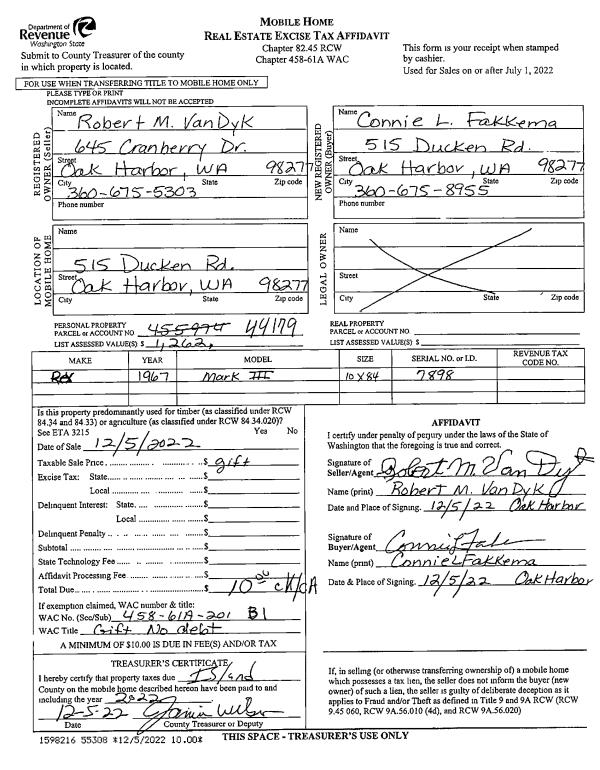 Department of
Revenue
Washington State
Submit to County Treasurer of the county
in which property is located.
MOBILE HOME
REAL ESTATE EXCISE TAX AFFIDAVIT
Chapter 82.45 RCW
Chapter 458-61A WAC
This form is your receipt when stamped
by cashier.
Used for Sales on or after July 1, 2022
FOR USE WHEN TRANSFERRING TITLE TO MOBILE HOME ONLY
PLEASE TYPE OR PRINT
INCOMPLETE AFFIDAVITS WILL NOT BE ACCEPTED
REGISTERED
OWNER (Seller)
Name Robert M. VanDyk
645 Cranberry Dr.
Street
Oak Harbor, WA 98277
City State Zip code
360-675-5303
Phone number
NEW REGISTERED
OWNER (Buyer)
Name Connie L. Fakkema
515 Ducken Rd.
Street
Oak Harbor, WA 98277
City State Zip code
360-675-8955
Phone number
LOCATION OF
MOBILE HOME
Name
515 Ducken Rd.
Street
Oak Harbor, WA 98277
City State Zip code
LEGAL OWNER
Name
Street
City State Zip code
PERSONAL PROPERTY
PARCEL or ACCOUNT NO. 44179
LIST ASSESSED VALUE(S) $ 1,262,
REAL PROPERTY
PARCEL or ACCOUNT NO.
LIST ASSESSED VALUE(S) $
MAKE YEAR MODEL SIZE SERIAL NO. or I.D. REVENUE TAX CODE NO.
1967 Mark III 10 x 84 7898
Is this property predominantly used for timber (as classified under RCW
84.34 and 84.33) or agriculture (as classified under RCW 84.34.020)?
See ETA 3215 Yes No
Date of Sale 12/5/2022
Taxable Sale Price $ gift
Excise Tax: State $
Local $
Delinquent Interest: State $
Local $
Delinquent Penalty $
Subtotal $
State Technology Fee $
Affidavit Processing Fee $
Total Due $ 10.00 ck/cA
If exemption claimed, WAC number & title:
WAC No. (Sec/Sub) 458-61A-201 B1
WAC Title Gift No debt
A MINIMUM OF $10.00 IS DUE IN FEE(S) AND/OR TAX
AFFIDAVIT
I certify under penalty of perjury under the laws of the State of
Washington that the foregoing is true and correct.
Signature of
Seller/Agent Robert M Van Dyk
Name (print) Robert M. VanDyk
Date and Place of Signing. 12/5/22 Oak Harbor
Signature of
Buyer/Agent
Name (print) Connie L Fakkema
Date & Place of Signing. 12/5/22 Oak Harbor
TREASURER'S CERTIFICATE
I hereby certify that property taxes due Island
County on the mobile home described hereon have been paid to and
including the year 2022
12-5-22
Date County Treasurer or Deputy
If, in selling (or otherwise transferring ownership of) a mobile home
which possesses a tax lien, the seller does not inform the buyer (new
owner) of such a lien, the seller is guilty of deliberate deception as it
applies to Fraud and/or Theft as defined in Title 9 and 9A RCW (RCW
9.45 060, RCW 9A.56.010 (4d), and RCW 9A.56.020)
1598216 55308 *12/5/2022 10.00*
THIS SPACE - TREASURER'S USE ONLY